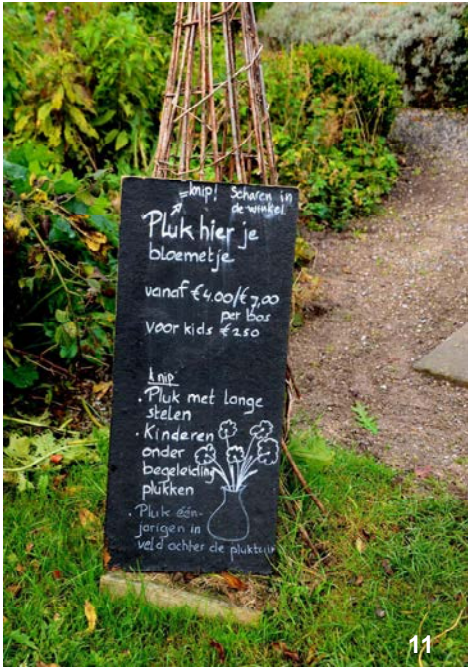 =knip! Scharen in
de winkel
Pluk hier je
bloemetje
vanaf € 4.00/€ 7,00
per bos
voor kids € 250
knip
. Pluk met lange
stelen
. Kinderen
onder
begeleiding
plukken
. Pluk één-
jarigen in
veld achter de pluktuin
11